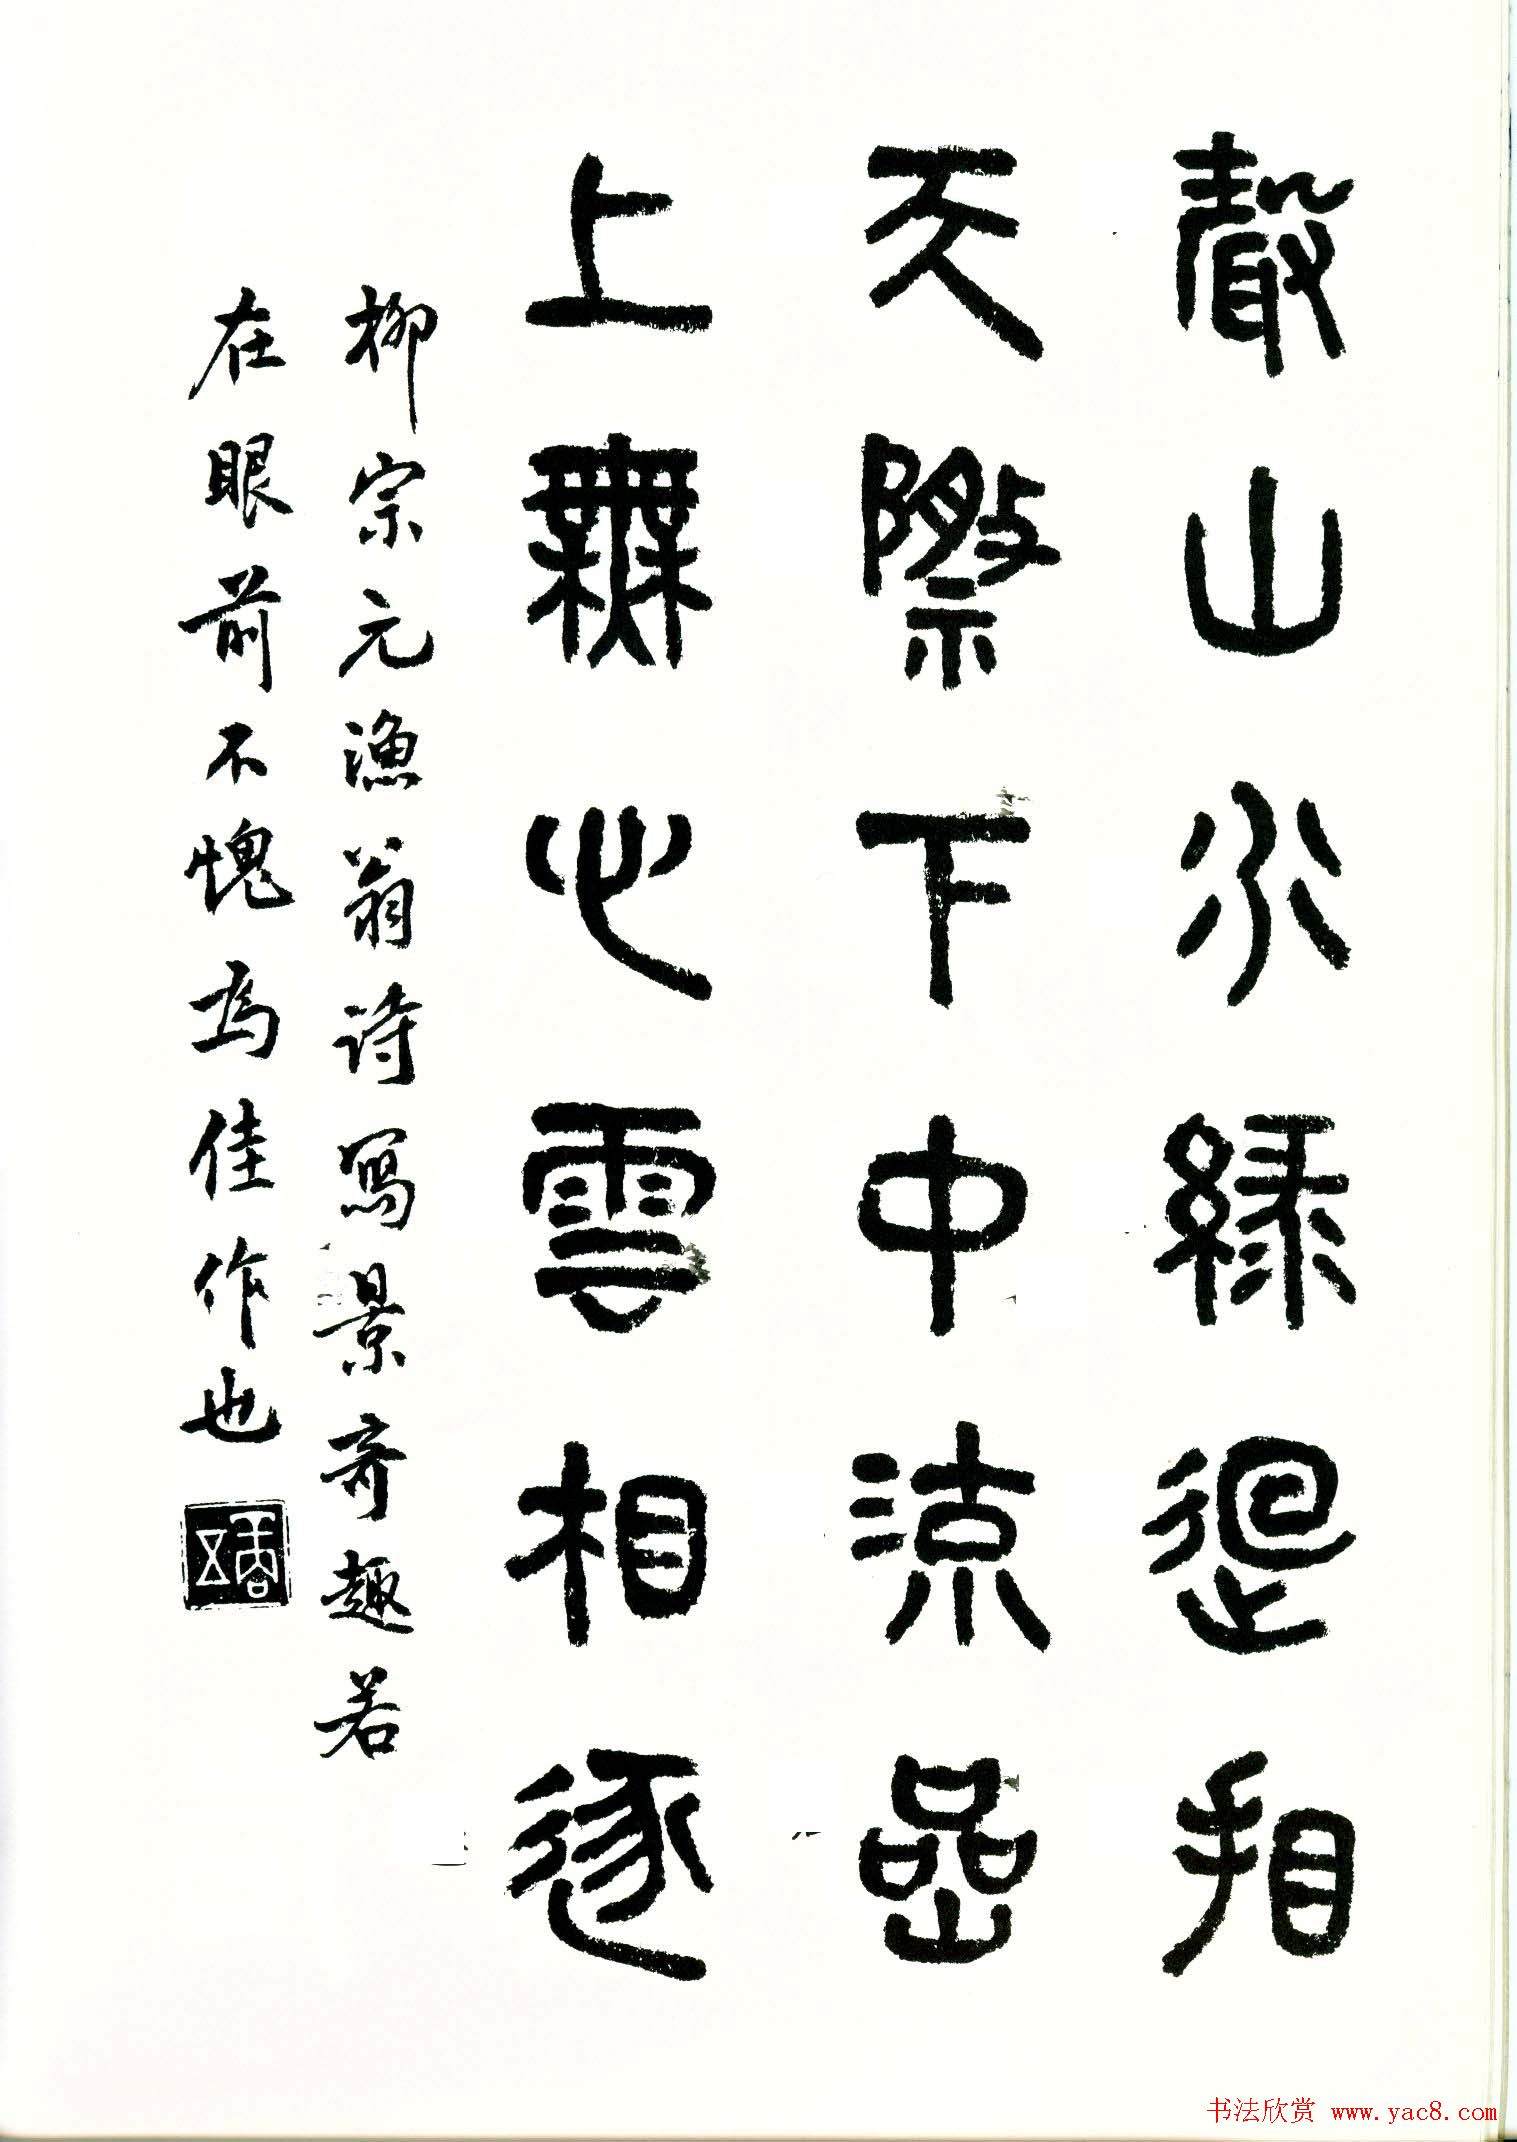 聲山水綠迴看
天際下中流嵒
上無心雲相逐
柳宗元漁翁詩寫景奇趣若
在眼前不愧為佳作也
书法欣赏 www.yac8.com